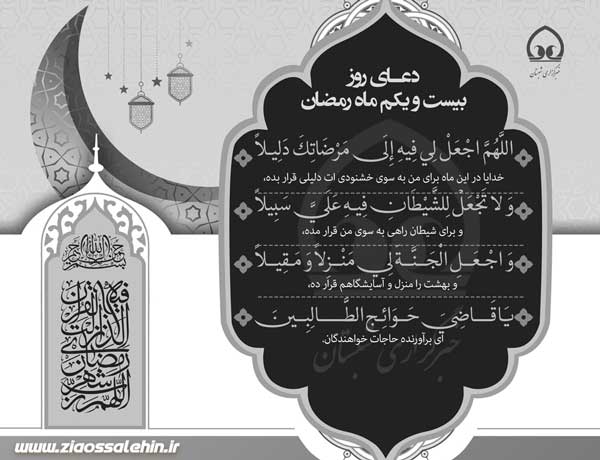 خبرگزاری شبستان
دعای روز
بیست و یکم ماه رمضان
اللَّهُمَّ اجْعَلْ لِي فِيهِ إِلَى مَرْضَاتِكَ دَلِيلاً
خدایا در این ماه برای من به سوی خشنودی ات دلیلی قرار بده،
وَ لا تَجْعَلْ لِلشَّيْطَانِ فِيهِ عَلَيَّ سَبِيلاً
و برای شیطان راهی به سوی من قرار مده،
وَ اجْعَلِ الْجَنَّةَ لِي مَنْزِلاً وَ مَقِيلاً
و بهشت را منزل و آسایشگاهم قرار ده،
يَا قَاضِيَ حَوَائِجِ الطَّالِبِينَ
ای برآورنده حاجات خواهندگان.
خبرگزاری شبستان
بسم الله الرحمن الرحیم
اللهم رب شهر
رمضان الذی انزلت
فیه القرآن
www.ziaossalehin.ir